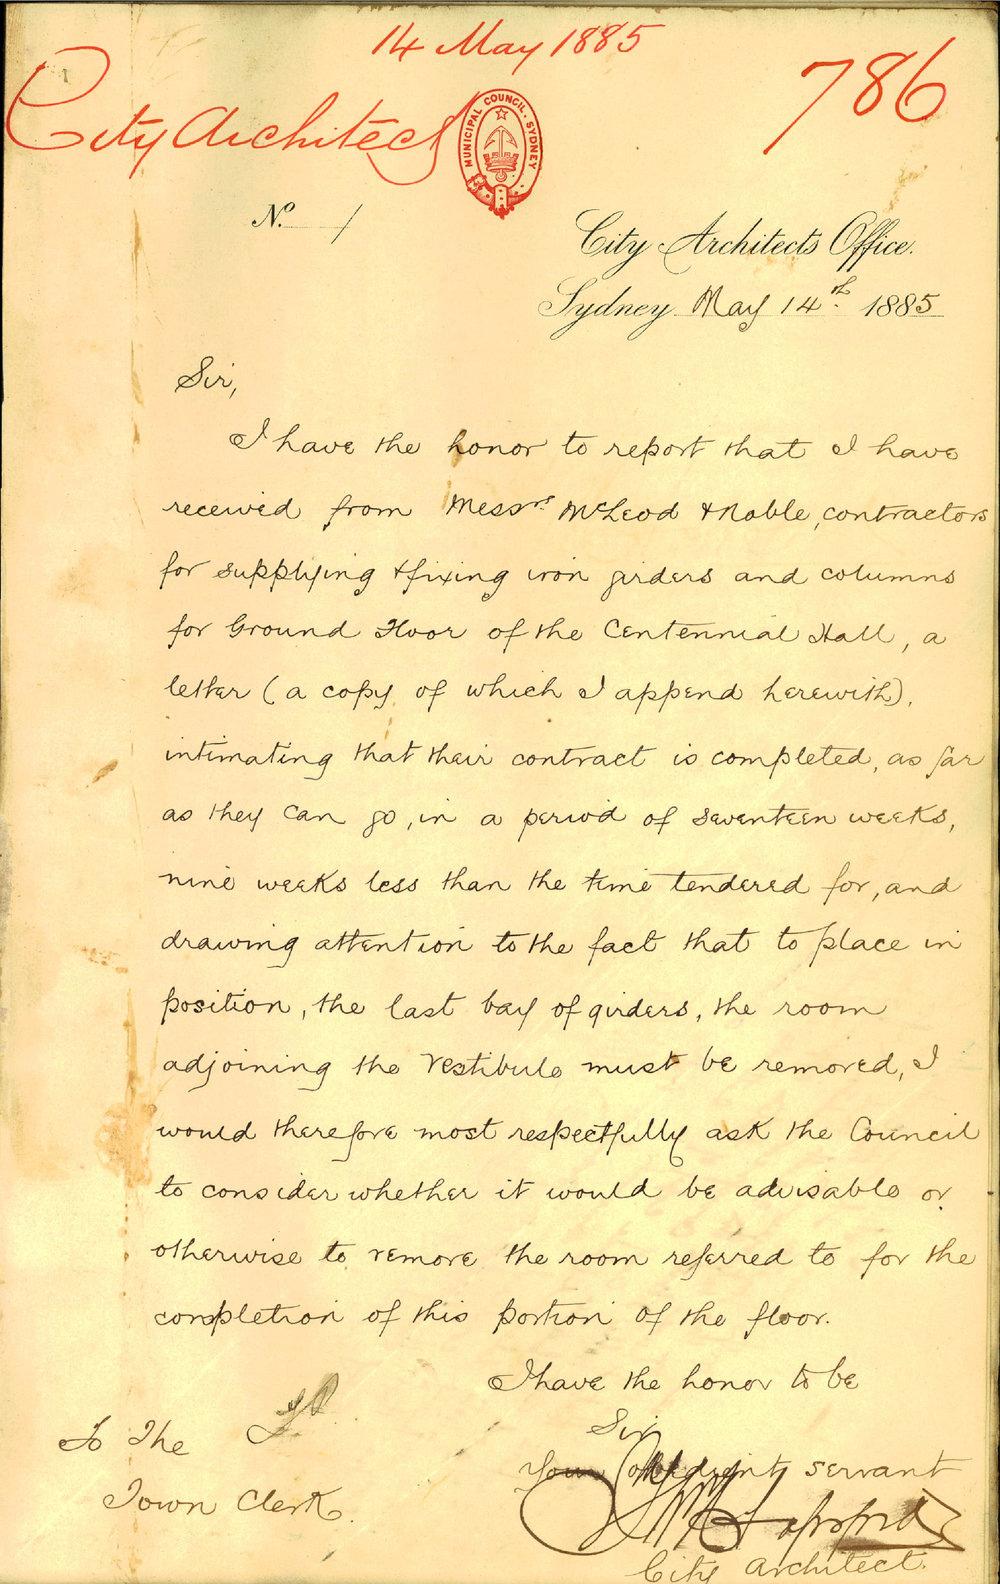 14 May 1885
786
City Architect
MUNICIPAL COUNCIL. SYDNEY
No. 1
City Architects Office.
Sydney May 14th. 1885
Sir,
I have the honor to report that I have
received from Messrs McLeod & Noble, contractors
for supplying & fixing iron girders and columns
for Ground Floor of the Centennial Hall, a
letter (a copy of which I append herewith),
intimating that their contract is completed, as far
as they can go, in a period of seventeen weeks,
nine weeks less than the time tendered for, and
drawing attention to the fact that to place in
position, the last bay of girders, the room
adjoining the Vestibule must be removed, I
would therefore most respectfully ask the Council
to consider whether it would be advisable or
otherwise to remove the room referred to for the
completion of this portion of the floor.
I have the honor to be
Sir
Your obedient servant
Sapsford
City Architect.
To The
Town Clerk.